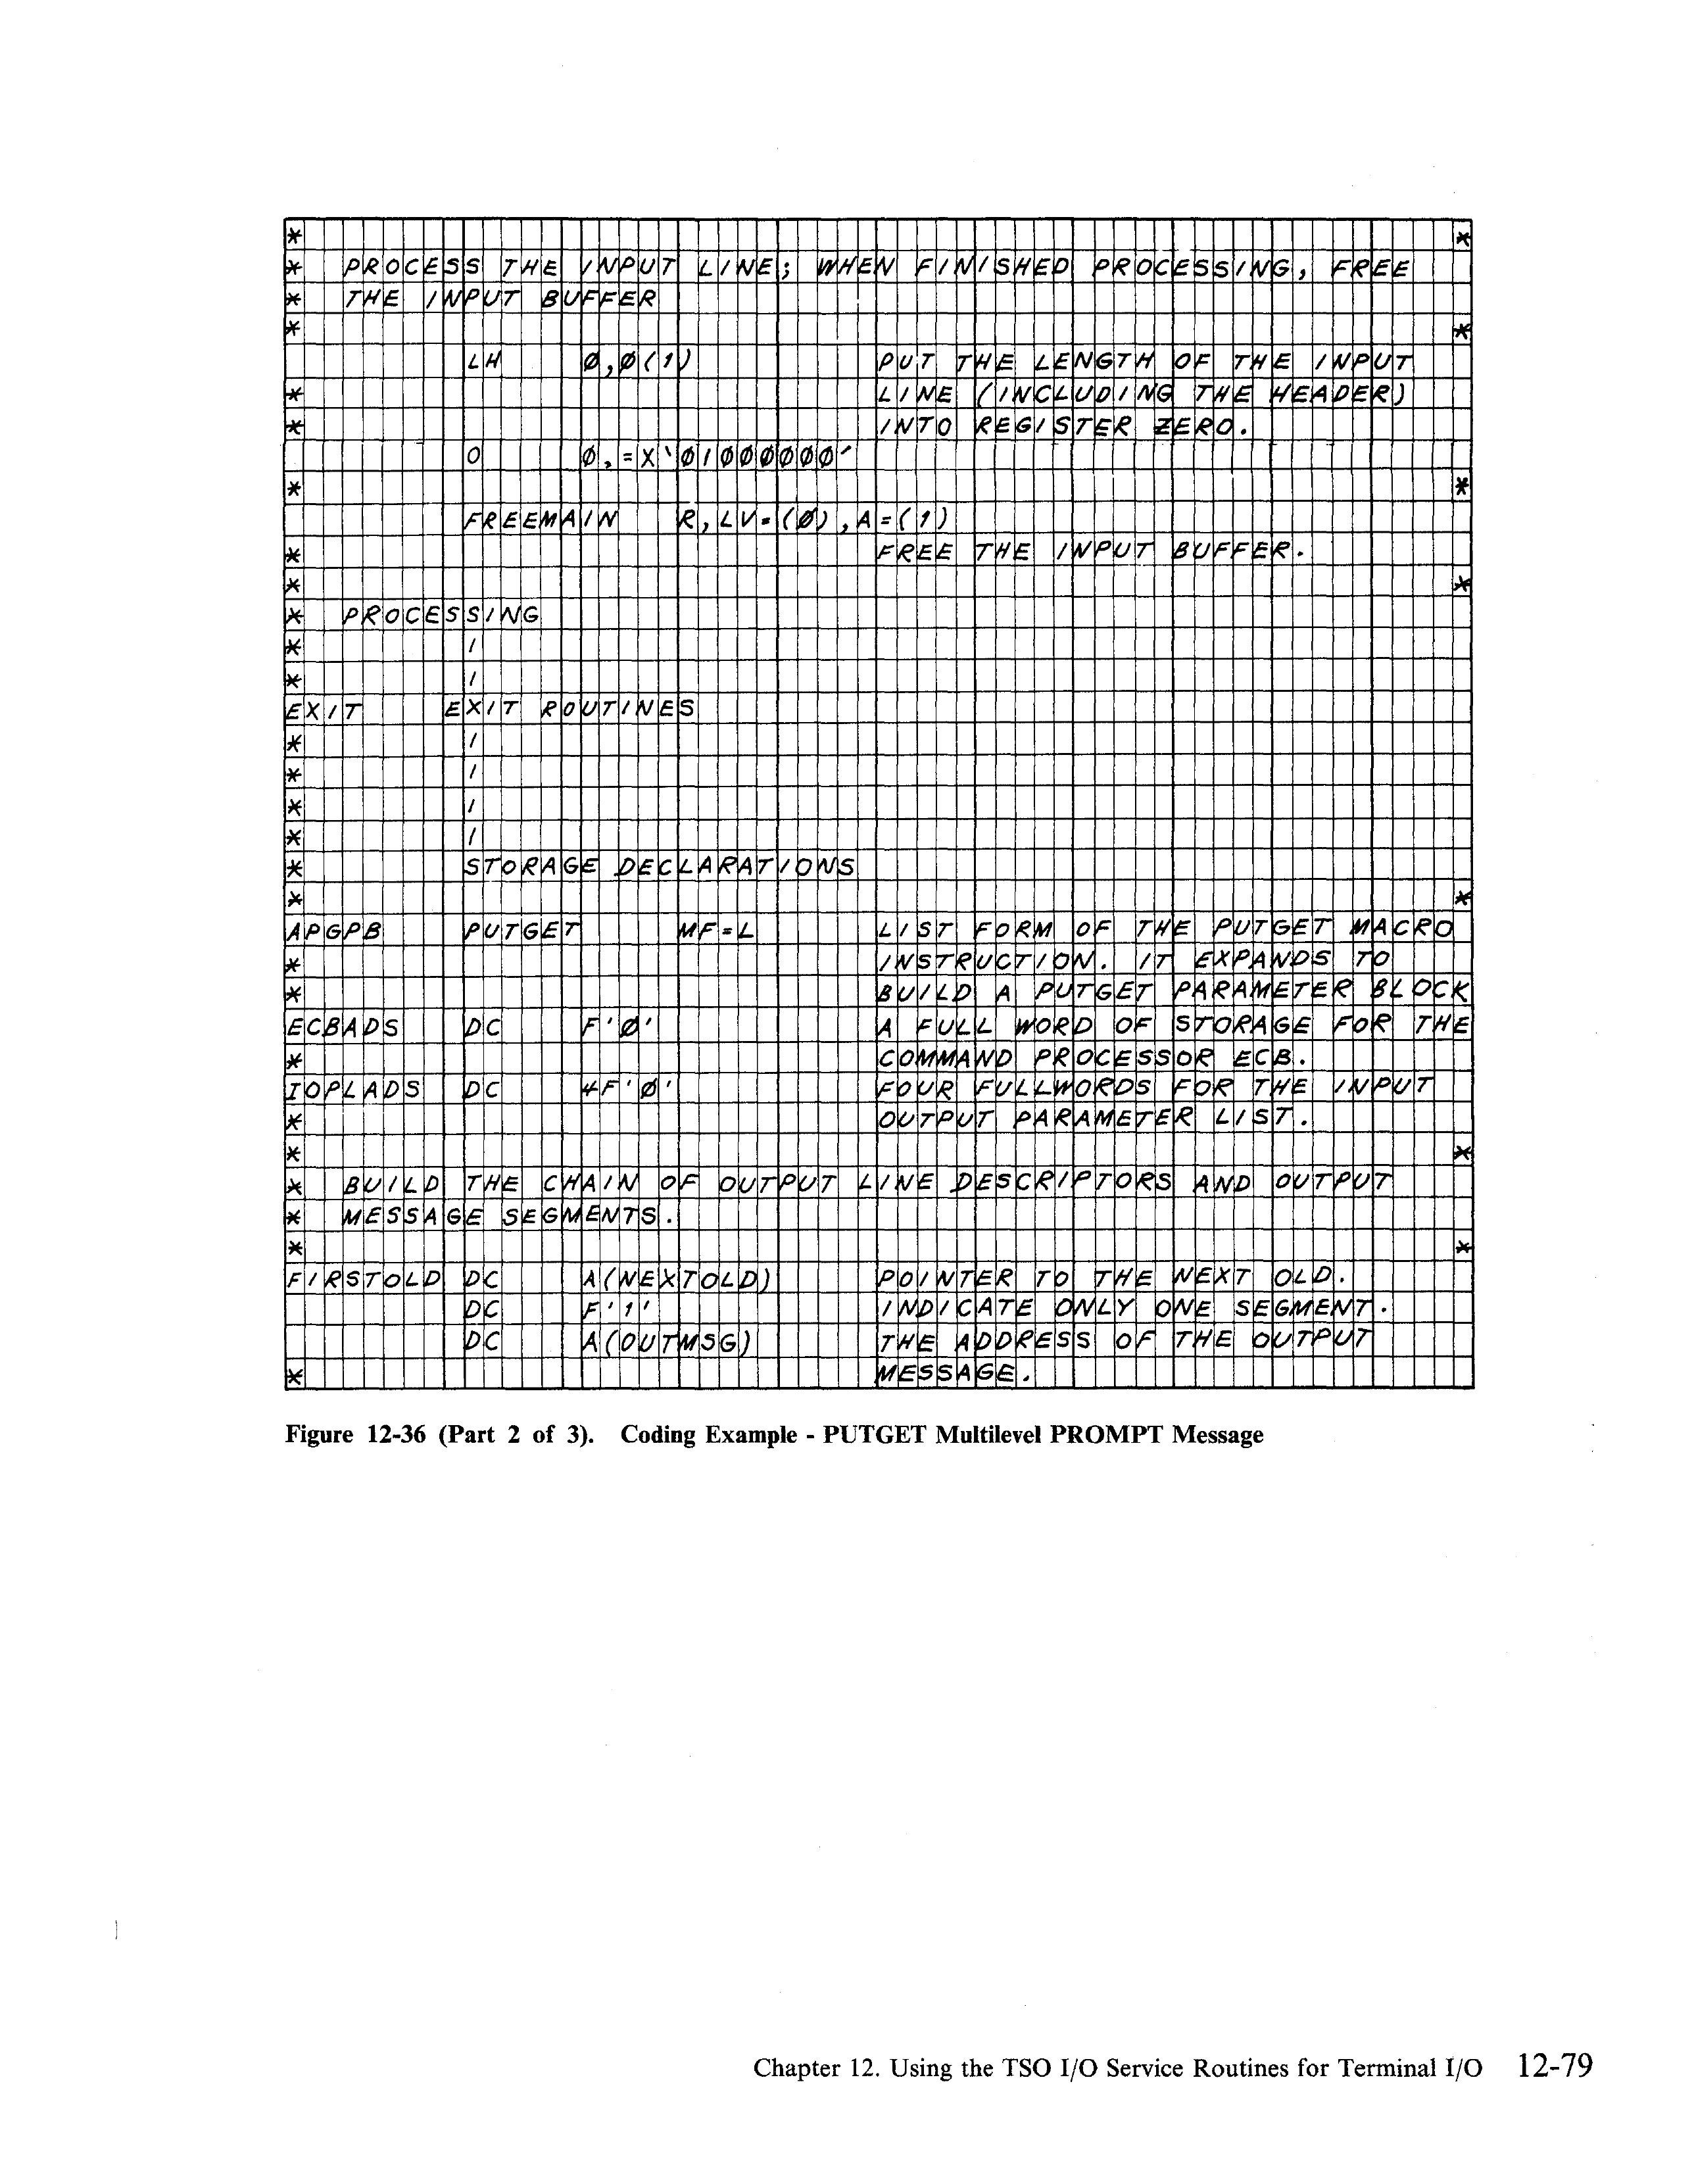 *                                                          *
*  PROCESS THE INPUT LINE; WHEN FINISHED PROCESSING, FREE
*  THE INPUT BUFFER
*                                                          *
         LH    Ø,Ø(1)         PUT THE LENGTH OF THE INPUT
*                             LINE (INCLUDING THE HEADER)
*                             INTO REGISTER ZERO.
         O     Ø,=X'Ø1ØØØØØØ'
*                                                          *
         FREEMAIN   R,LV=(Ø),A=(1)
*                             FREE THE INPUT BUFFER.
*                                                          *
*  PROCESSING
*        /
*        /
EXIT    EXIT ROUTINES
*        /
*        /
*        /
*        /
*        STORAGE DECLARATIONS
*                                                          *
APGPB    PUTGET     MF=L      LIST FORM OF THE PUTGET MACRO
*                             INSTRUCTION. IT EXPANDS TO
*                             BUILD A PUTGET PARAMETER BLOCK
ECBADS   DC    F'Ø'           A FULL WORD OF STORAGE FOR THE
*                             COMMAND PROCESSOR ECB.
IOPLADS  DC    4F'Ø'          FOUR FULLWORDS FOR THE INPUT
*                             OUTPUT PARAMETER LIST.
*                                                          *
*  BUILD THE CHAIN OF OUTPUT LINE DESCRIPTORS AND OUTPUT
*  MESSAGE SEGMENTS.
*                                                          *
FIRSTOLD DC    A(NEXTOLD)     POINTER TO THE NEXT OLD.
         DC    F'1'           INDICATE ONLY ONE SEGMENT.
         DC    A(OUTMSG)      THE ADDRESS OF THE OUTPUT
*                             MESSAGE.
Figure 12-36 (Part 2 of 3). Coding Example - PUTGET Multilevel PROMPT Message
Chapter 12. Using the TSO I/O Service Routines for Terminal I/O 12-79